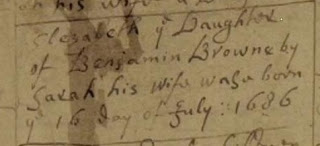 his wife
Elesabeth ye Daughter
of Benjamin Browne by
Sarah his wife was born
ye 16 day of July : 1686